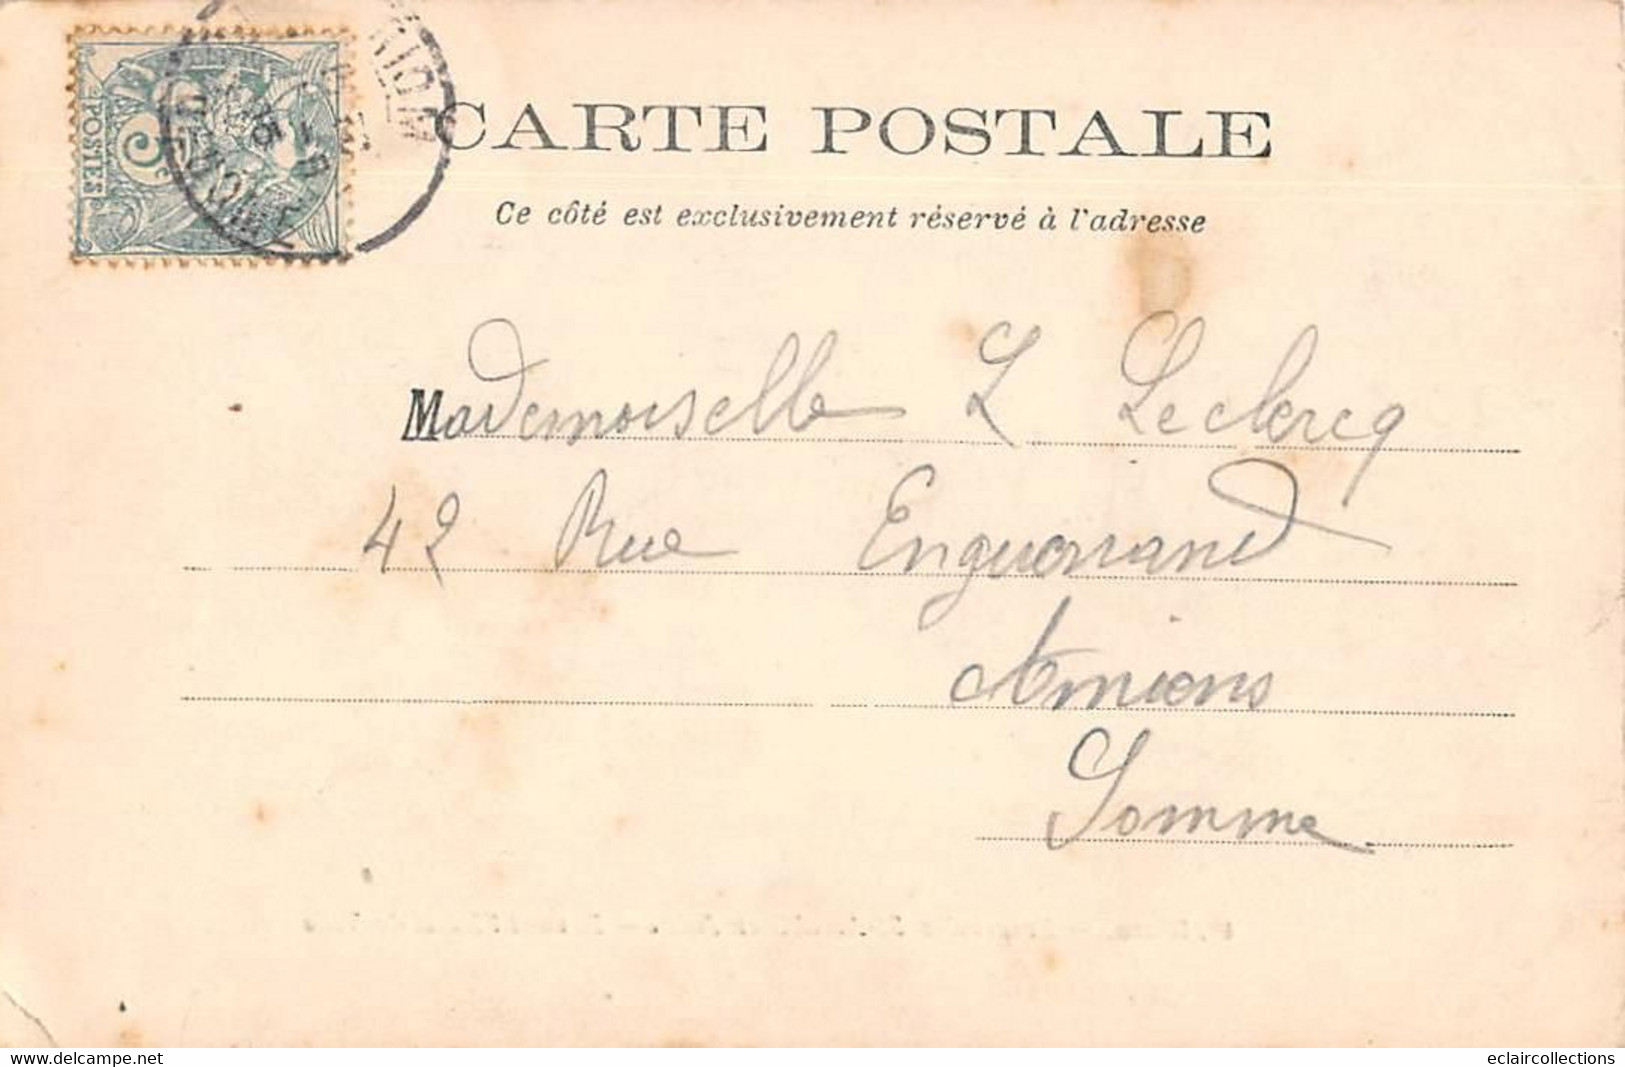 CARTE POSTALE
Ce côté est exclusivement réservé à l'adresse
POSTES
5c
RIOM
PUY-DE-DOME
Mademoiselle L Leclercq
42 Rue Enguerrand
Amiens
Somme
www.delcampe.net
eclaircollections